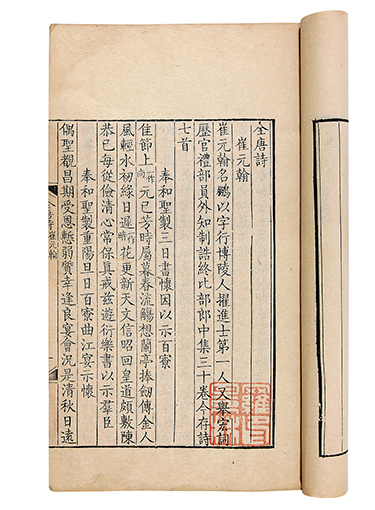 全唐詩
崔元翰
崔元翰名鵬以字行博陵人擢進士第一人又舉宏詞
歷官禮部員外知制誥終比部郎中集三十卷今存詩
七首
奉和聖製三日書懷因以示百寮
佳節上一作尚元巳芳時屬暮春流觴想蘭亭捧劒傳金人
風輕水初綠日遲一作晴花更新天文信昭回皇道頗敷陳
恭已每從儉清心常保真戒茲遊衍樂書以示羣臣
奉和聖製重陽旦日百寮曲江宴示懷
偶聖覩昌期受恩慙弱質幸逢良宴會況是清秋日遠